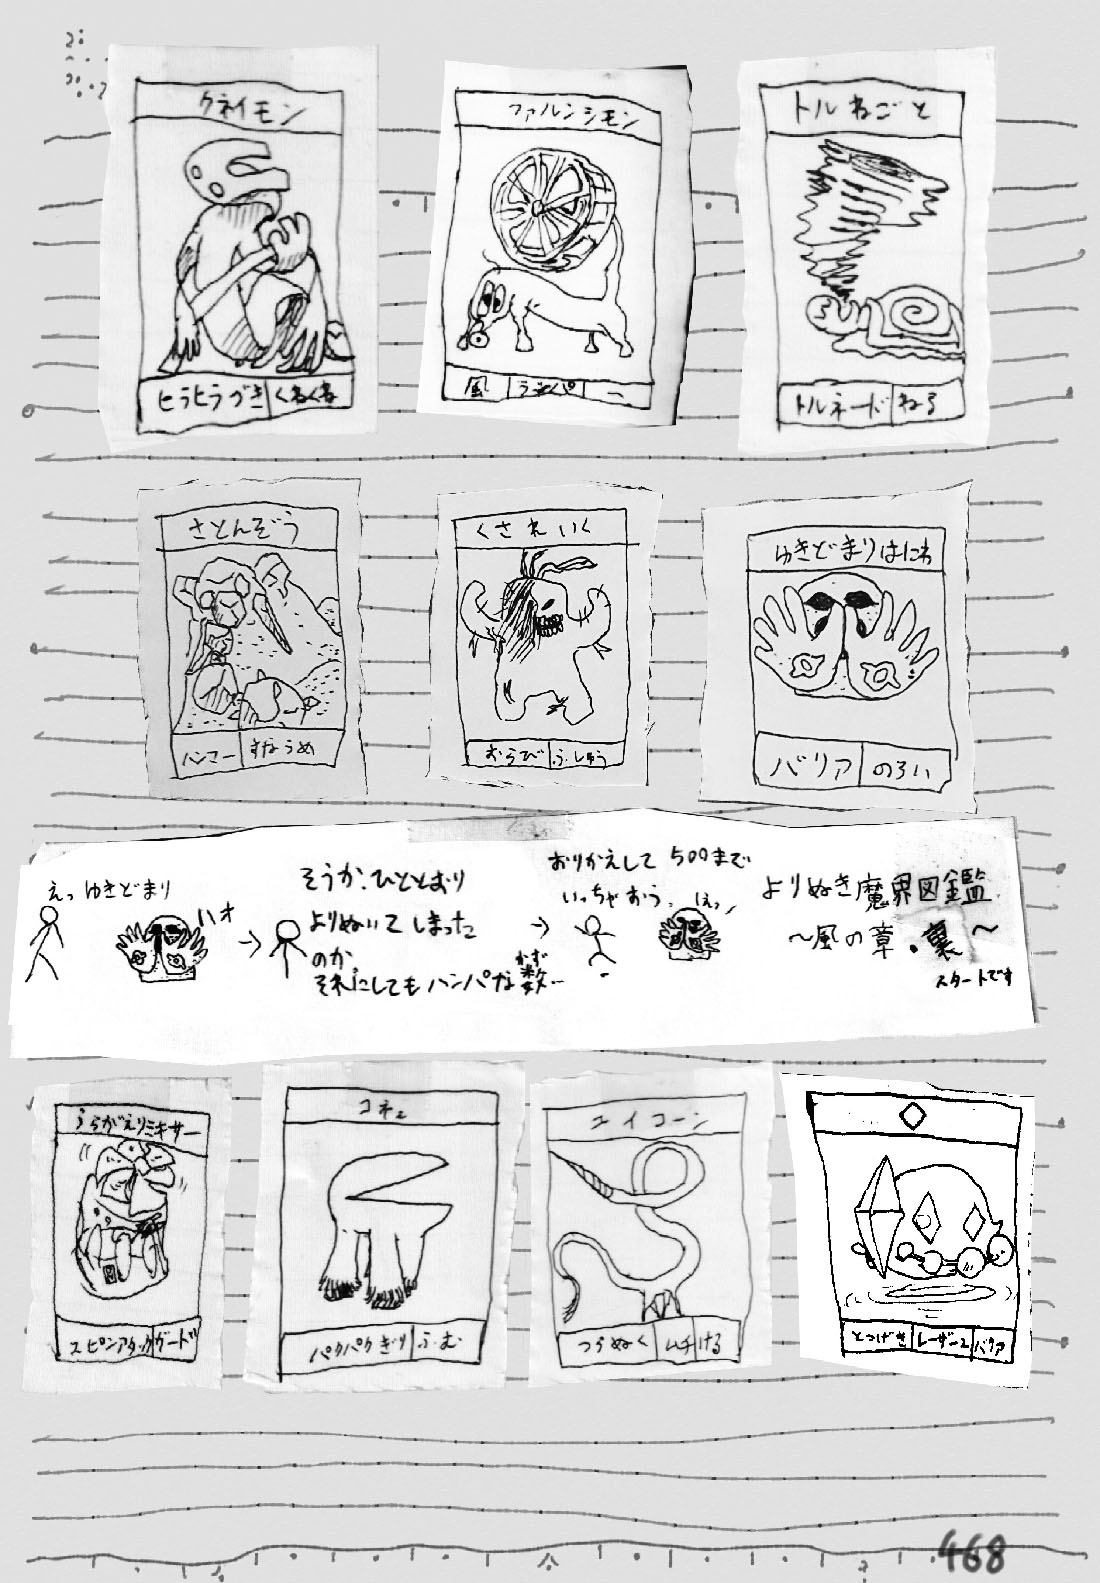 クネイモン
ヒラヒラづき くねくね
ファルンシモン
風
トルねごと
トルネード ねる
さとんぞう
ハンマー すなうめ
くされいく
おらび ふしゅう
ゆきどまりはにわ
バリア のろい
えっ ゆきどまり
ハオ
そうか、ひととおり
よりぬいてしまった
のか
それにしてもハンパな数…
かず
おりかえして 500まで
いっちゃおう、
えっ
よりぬき魔界図鑑
〜風の章・裏〜
スタートです
うらがえりミキサー
スピンアタック ガード
コネェ
パクパクぎり ふむ
ユイコーン
つらぬく ムチ ける
◇
とつげき レーザー2 バリア
468